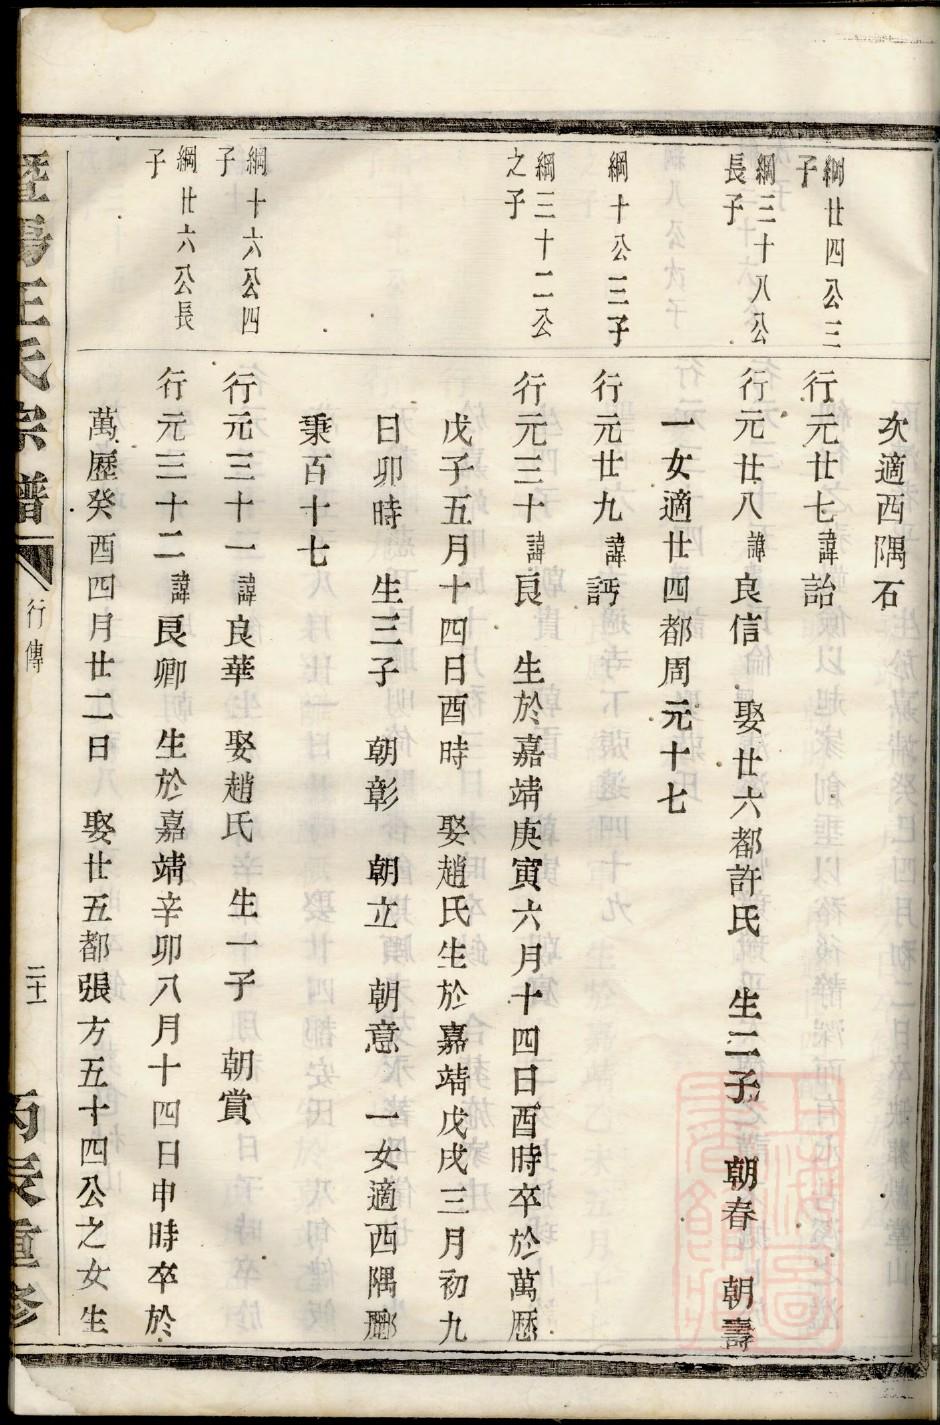 次適西隅石
綱廿四公三
子
行元廿七諱詒
綱三十八公
長子
行元廿八諱良信　娶廿六都許氏　生二子　朝春　朝壽
一女適廿四都周元十七
綱十公三子
行元廿九諱諤
綱三十二公
之子
行元三十諱良　生於嘉靖庚寅六月十四日酉時卒於萬歷
戊子五月十四日酉時　娶趙氏生於嘉靖戊戌三月初九
日卯時　生三子　朝彰　朝立　朝意　一女適西隅酈
秉百十七
綱十六公四
子
行元三十一諱良華　娶趙氏　生一子　朝賞
綱廿六公長
子
行元三十二諱良卿　生於嘉靖辛卯八月十四日申時卒於
萬歷癸酉四月廿二日　娶廿五都張方五十四公之女生
暨陽王氏宗譜
行傳
二十一
丙辰重修